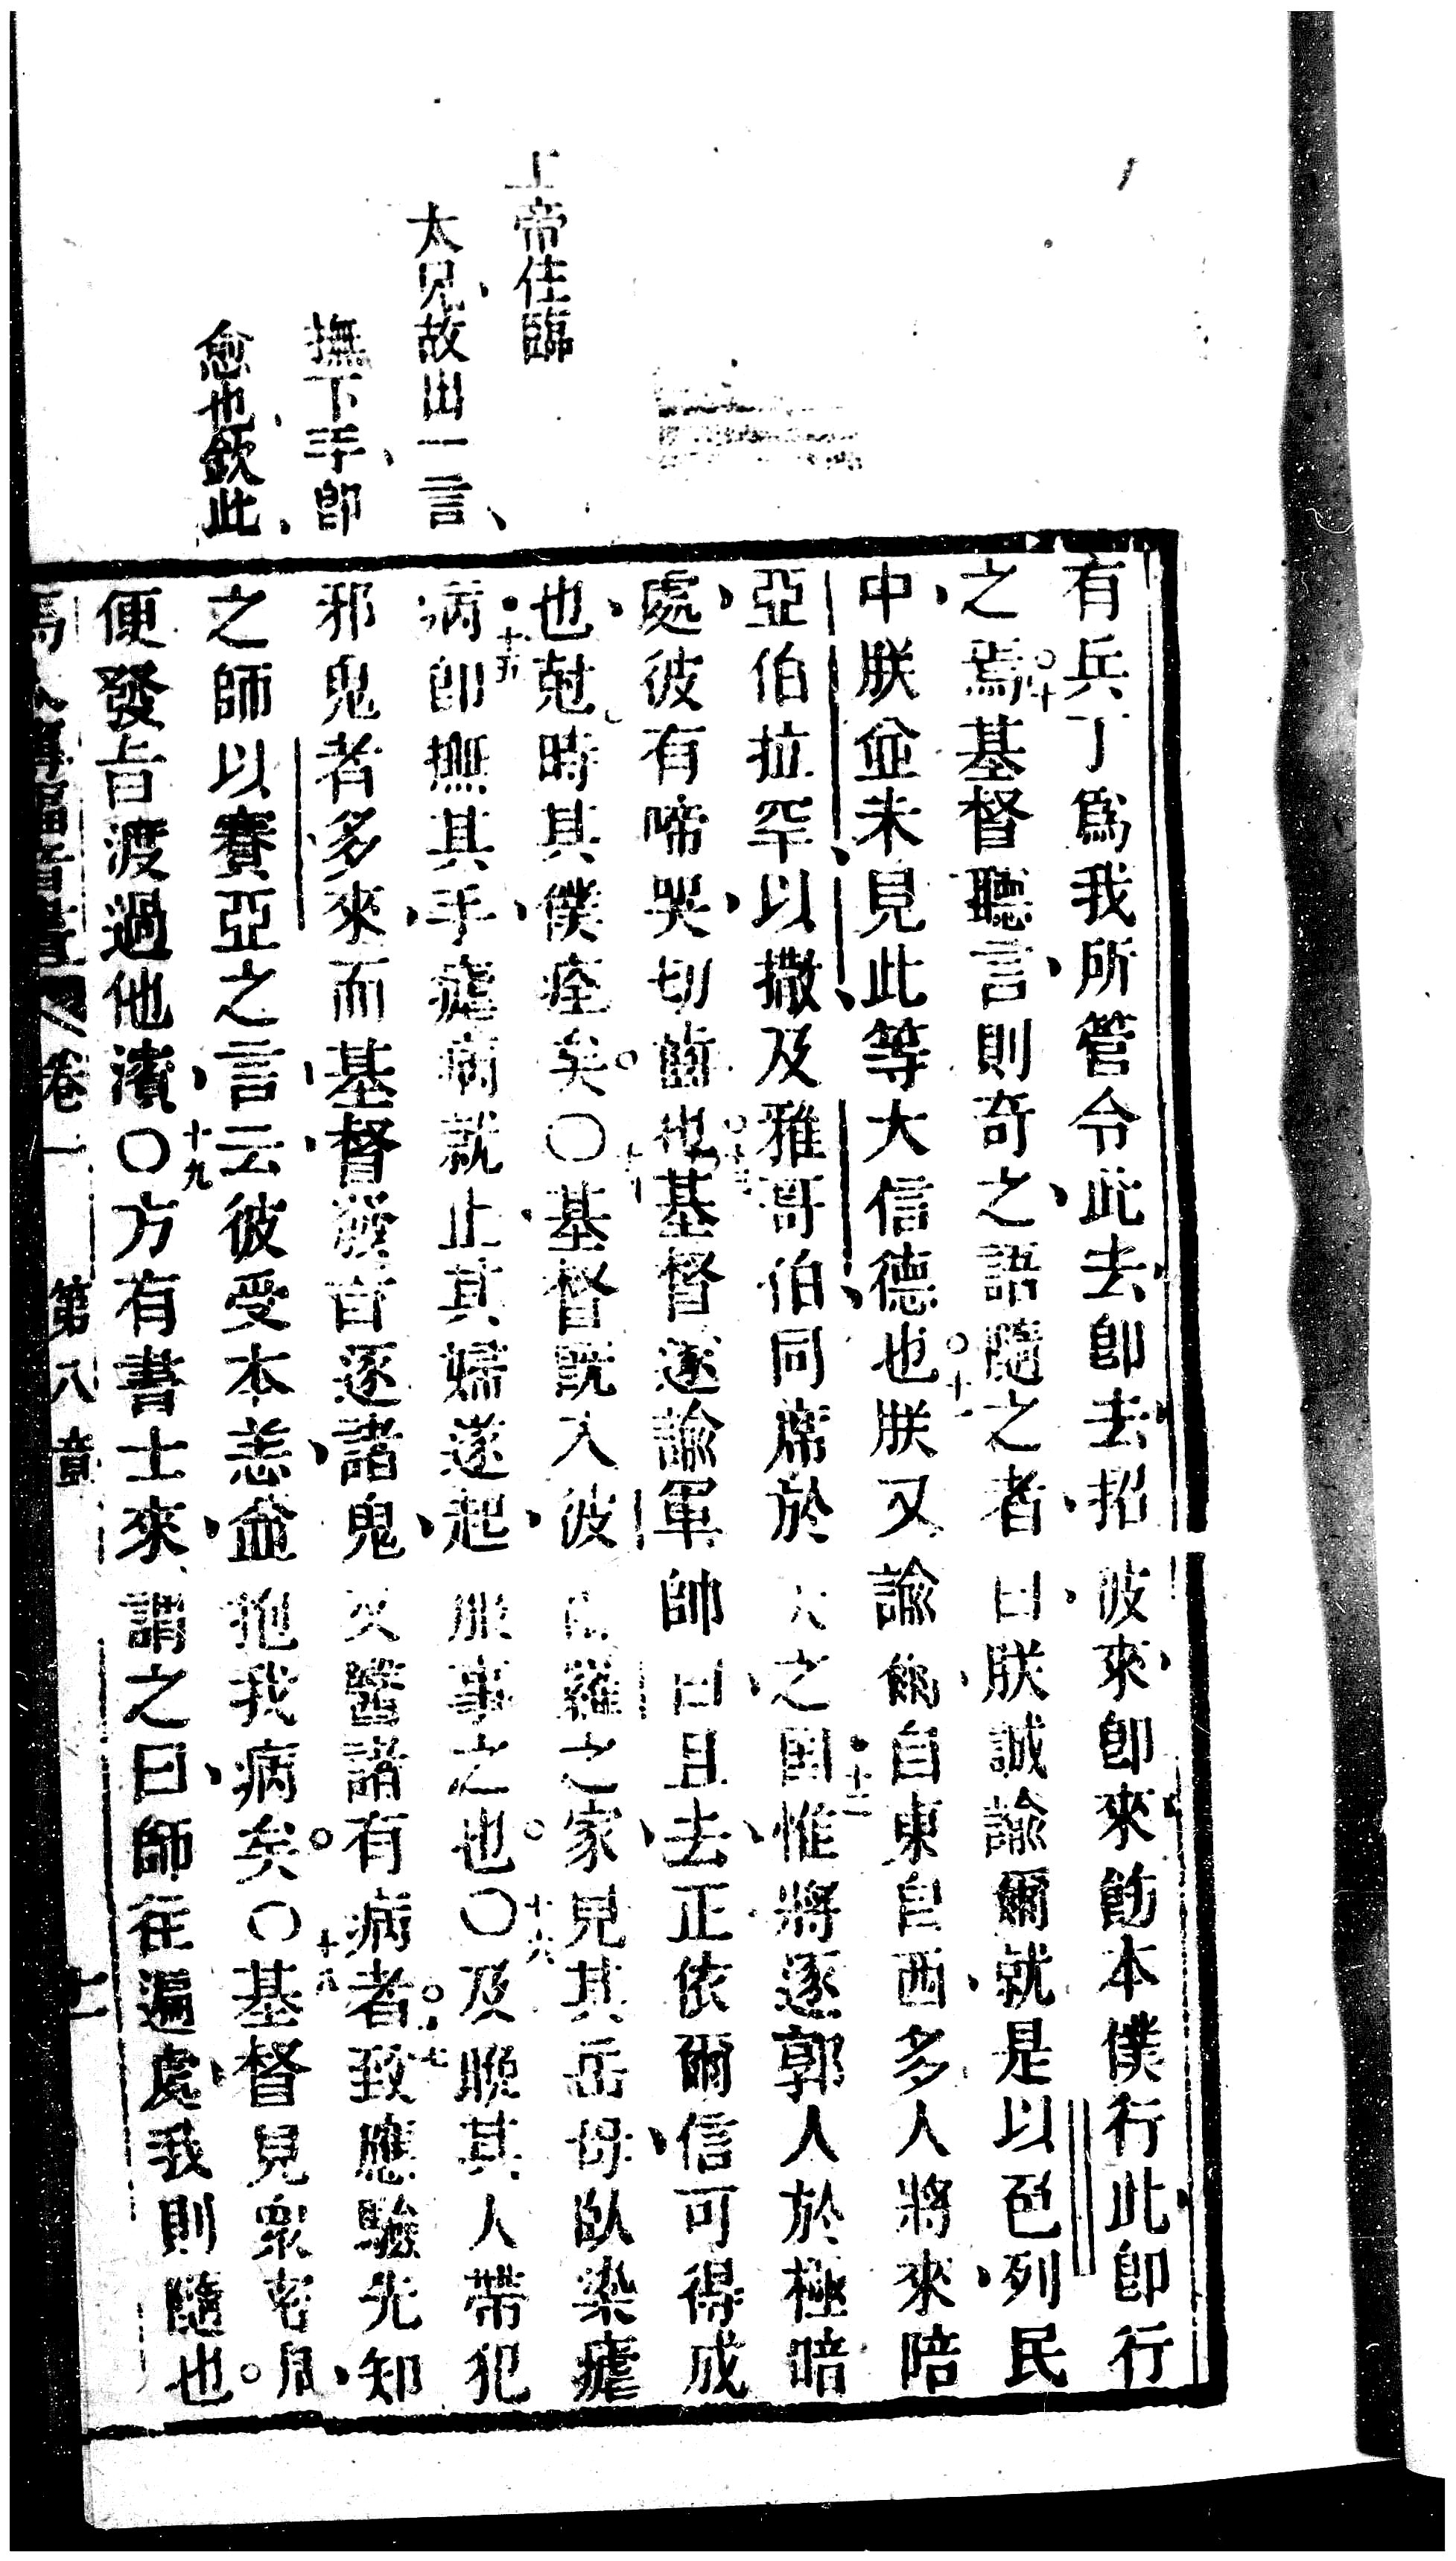 上帝住臨
太兄、故出一言、
撫下手、即
愈也、欽此、
有兵丁爲我所管令此去即去招彼來即來飭本僕行此即行
之焉○十基督聽言則奇之語隨之者曰朕誠諭爾就是以色列民
中朕並未見此等大信德也○十一朕又諭爾自東自西多人將來陪
亞伯拉罕以撒及雅哥伯同席於天之國十二惟將逐郭人於極暗
處彼有啼哭切齒也基督遂諭軍帥曰且去正依爾信可得成
也尅時其僕痊矣○基督既入彼羅之家見其岳母臥染瘧
病十五即撫其手瘧病就止其婦遂起服事之也○十六及晚其人帶犯
邪鬼者多來而基督發旨逐諸鬼又醫諸有病者十七致應驗先知
之師以賽亞之言云彼受本恙並抱我病矣○十八基督見眾
便發旨渡過他濱○十九方有書士來謂之曰師往遍處我則隨也
卷一 第八章